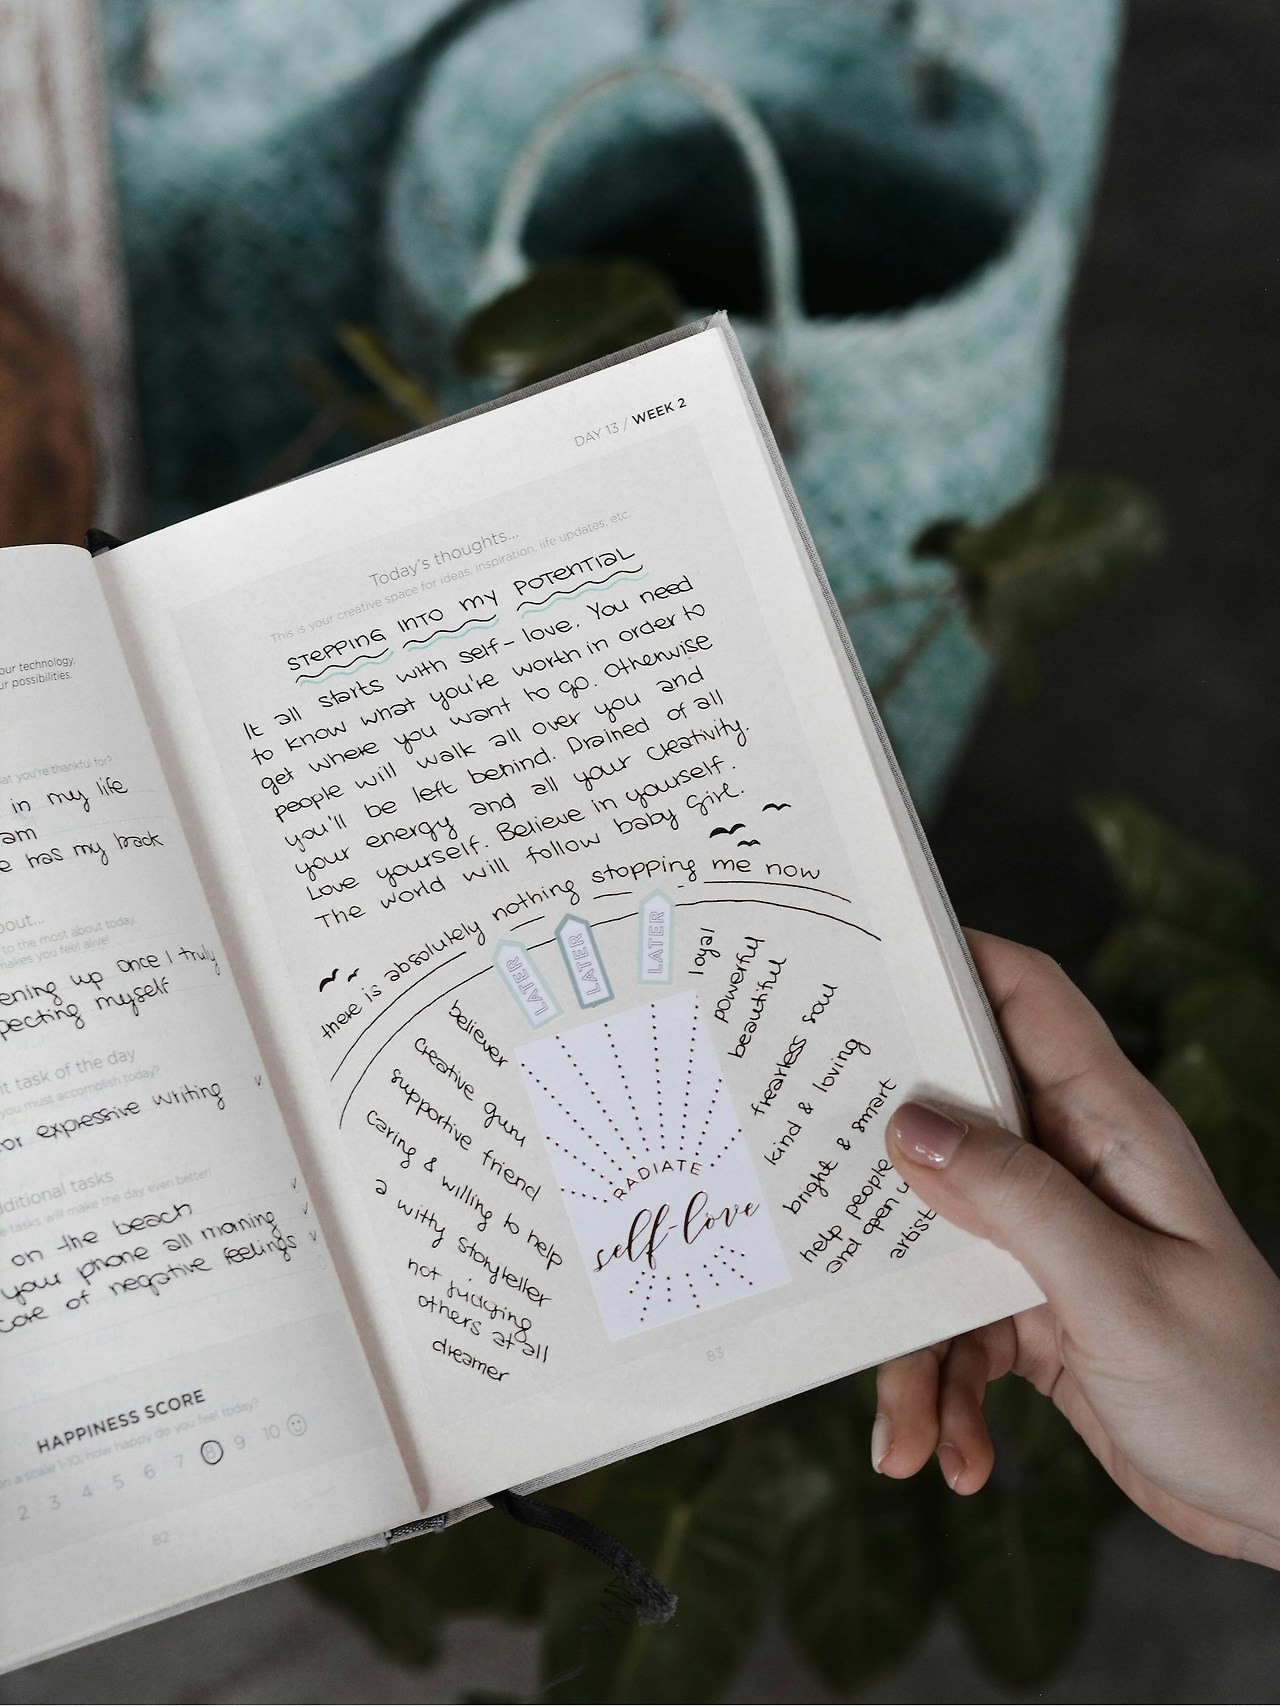 our technology.
ur possibilities.
at you're thankful for?
in my life
am
e has my back
bout...
to the most about today.
makes you feel alive!
ening up once I truly
pecting myself
nt task of the day
you must accomplish today?
or expressive writing
dditional tasks
e tasks will make the day even better!
on the beach
your phone all morning
care of negative feelings
HAPPINESS SCORE
on a scale 1-10, how happy do you feel today?
2 3 4 5 6 7 8 9 10
82
DAY 13 / WEEK 2
Today's thoughts...
This is your creative space for ideas, inspiration, life updates, etc.
STEPPING INTO MY POTENTIAL
It all starts with self-love. You need
to know what you're worth in order to
get where you want to go. Otherwise
people will walk all over you and
you'll be left behind. Drained of all
your energy and all your creativity.
Love yourself. Believe in yourself.
The world will follow baby girl.
there is absolutely nothing stopping me now
LATER
LATER
LATER
believer
creative guru
supportive friend
caring & willing to help
a withy storyteller
not judging
others at all
dreamer
RADIATE
self-love
loyal
powerful
beautiful
frearless soul
kind & loving
bright & smart
help people
and open u
artist
83